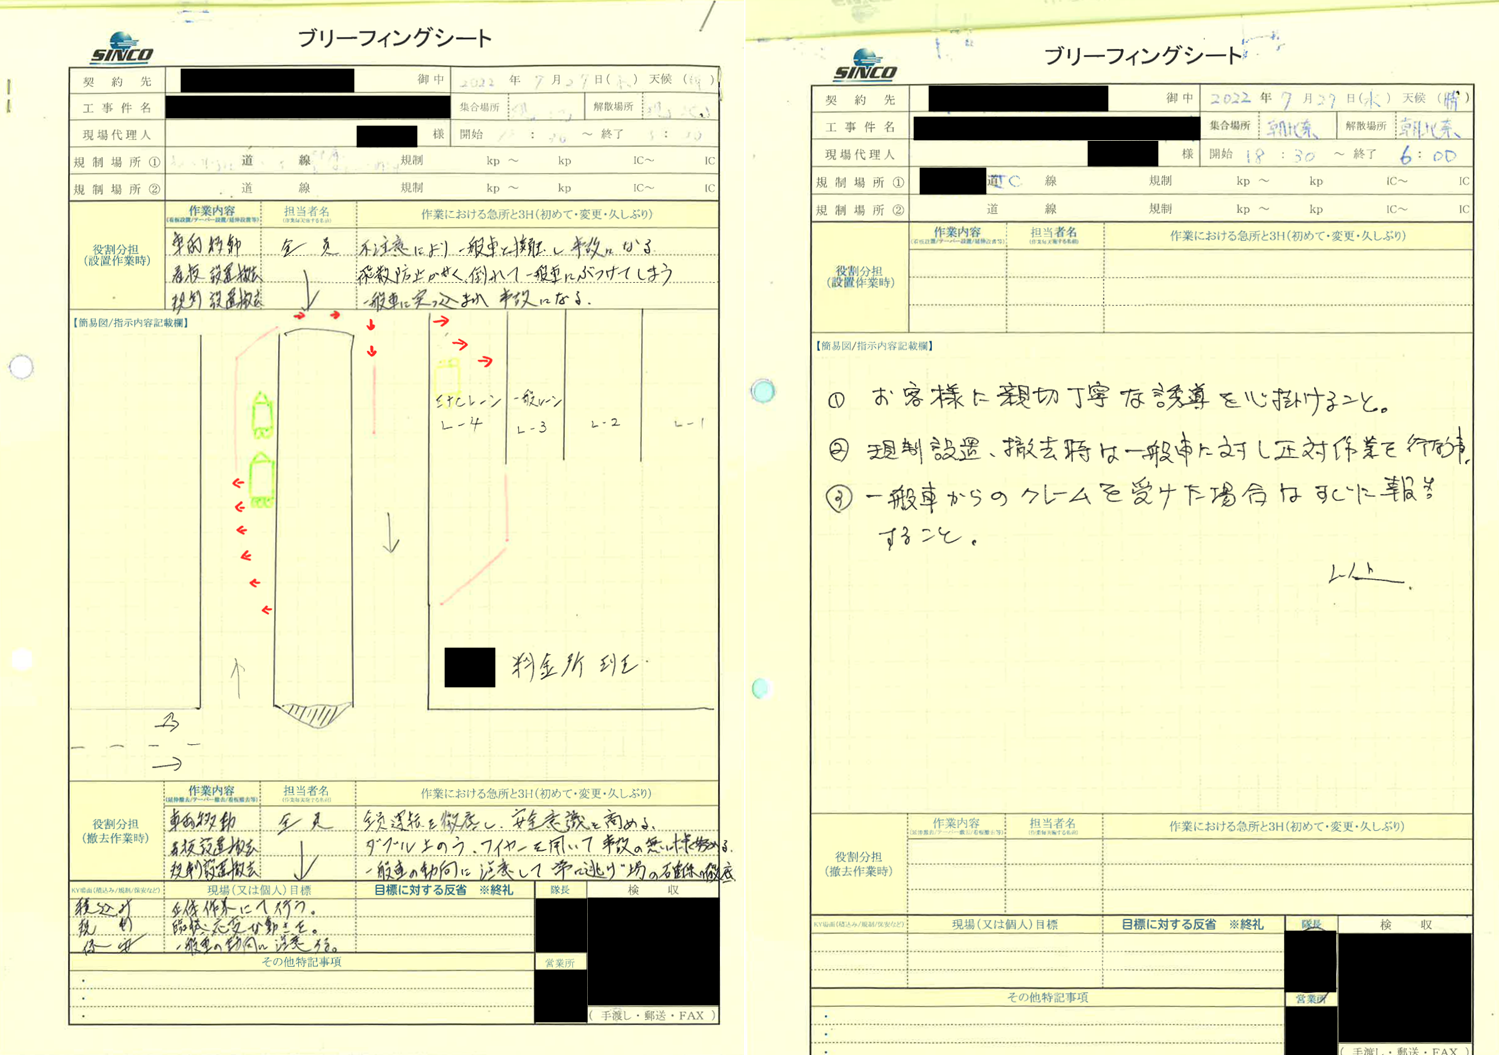 SINCO
ブリーフィングシート
契約先 御中 2022年7月27日(水) 天候(晴)
工事件名 集合場所 解散場所
現場代理人 様 開始 : 30 ～終了 :
規制場所① 道 線 規制 kp ～ kp IC～ IC
規制場所② 道 線 規制 kp ～ kp IC～ IC
役割分担
(設置作業時)
作業内容 担当者名 作業における急所と3H(初めて・変更・久しぶり)
車両移動 全員 不注意により一般車と接触し事故になる
看板設置撤去 飛散防止がせく、倒れて一般車にぶつけてしまう
規制設置撤去 一般車に突っ込まれ事故になる.
【簡易図/指示内容記載欄】
ETCレーン 一般レーン
L-4 L-3 L-2 L-1
料金所 班
役割分担
(撤去作業時)
作業内容 担当者名 作業における急所と3H(初めて・変更・久しぶり)
車両移動 全員 安全運転を徹底し、安全意識を高める.
看板設置撤去 ダブル土のう、ワイヤーを用いて事故の無い様に努める.
規制設置撤去 一般車の動向に注意して常に逃げ場の確保の徹底
現場(又は個人)目標 目標に対する反省 ※終礼 隊長 検収
積込み
規制 臨機応変な動きを。
保安 一般車の動向に注意する。
その他特記事項 営業所
(手渡し・郵送・FAX)
SINCO
ブリーフィングシート
契約先 御中 2022年7月27日(水) 天候(晴)
工事件名 集合場所 朝比奈 解散場所 朝比奈
現場代理人 様 開始 18:30 ～終了 6:00
規制場所① 道 JC 線 規制 kp ～ kp IC～ IC
規制場所② 道 線 規制 kp ～ kp IC～ IC
役割分担
(設置作業時)
作業内容 担当者名 作業における急所と3H(初めて・変更・久しぶり)
【簡易図/指示内容記載欄】
① お客様に親切丁寧な誘導を心掛けること。
② 規制設置、撤去時は一般車に対し正対作業を行う事.
③ 一般車からのクレームを受けた場合はすぐに報告
すること。
以上.
役割分担
(撤去作業時)
作業内容 担当者名 作業における急所と3H(初めて・変更・久しぶり)
現場(又は個人)目標 目標に対する反省 ※終礼 隊長 検収
その他特記事項 営業所
(手渡し・郵送・FAX)